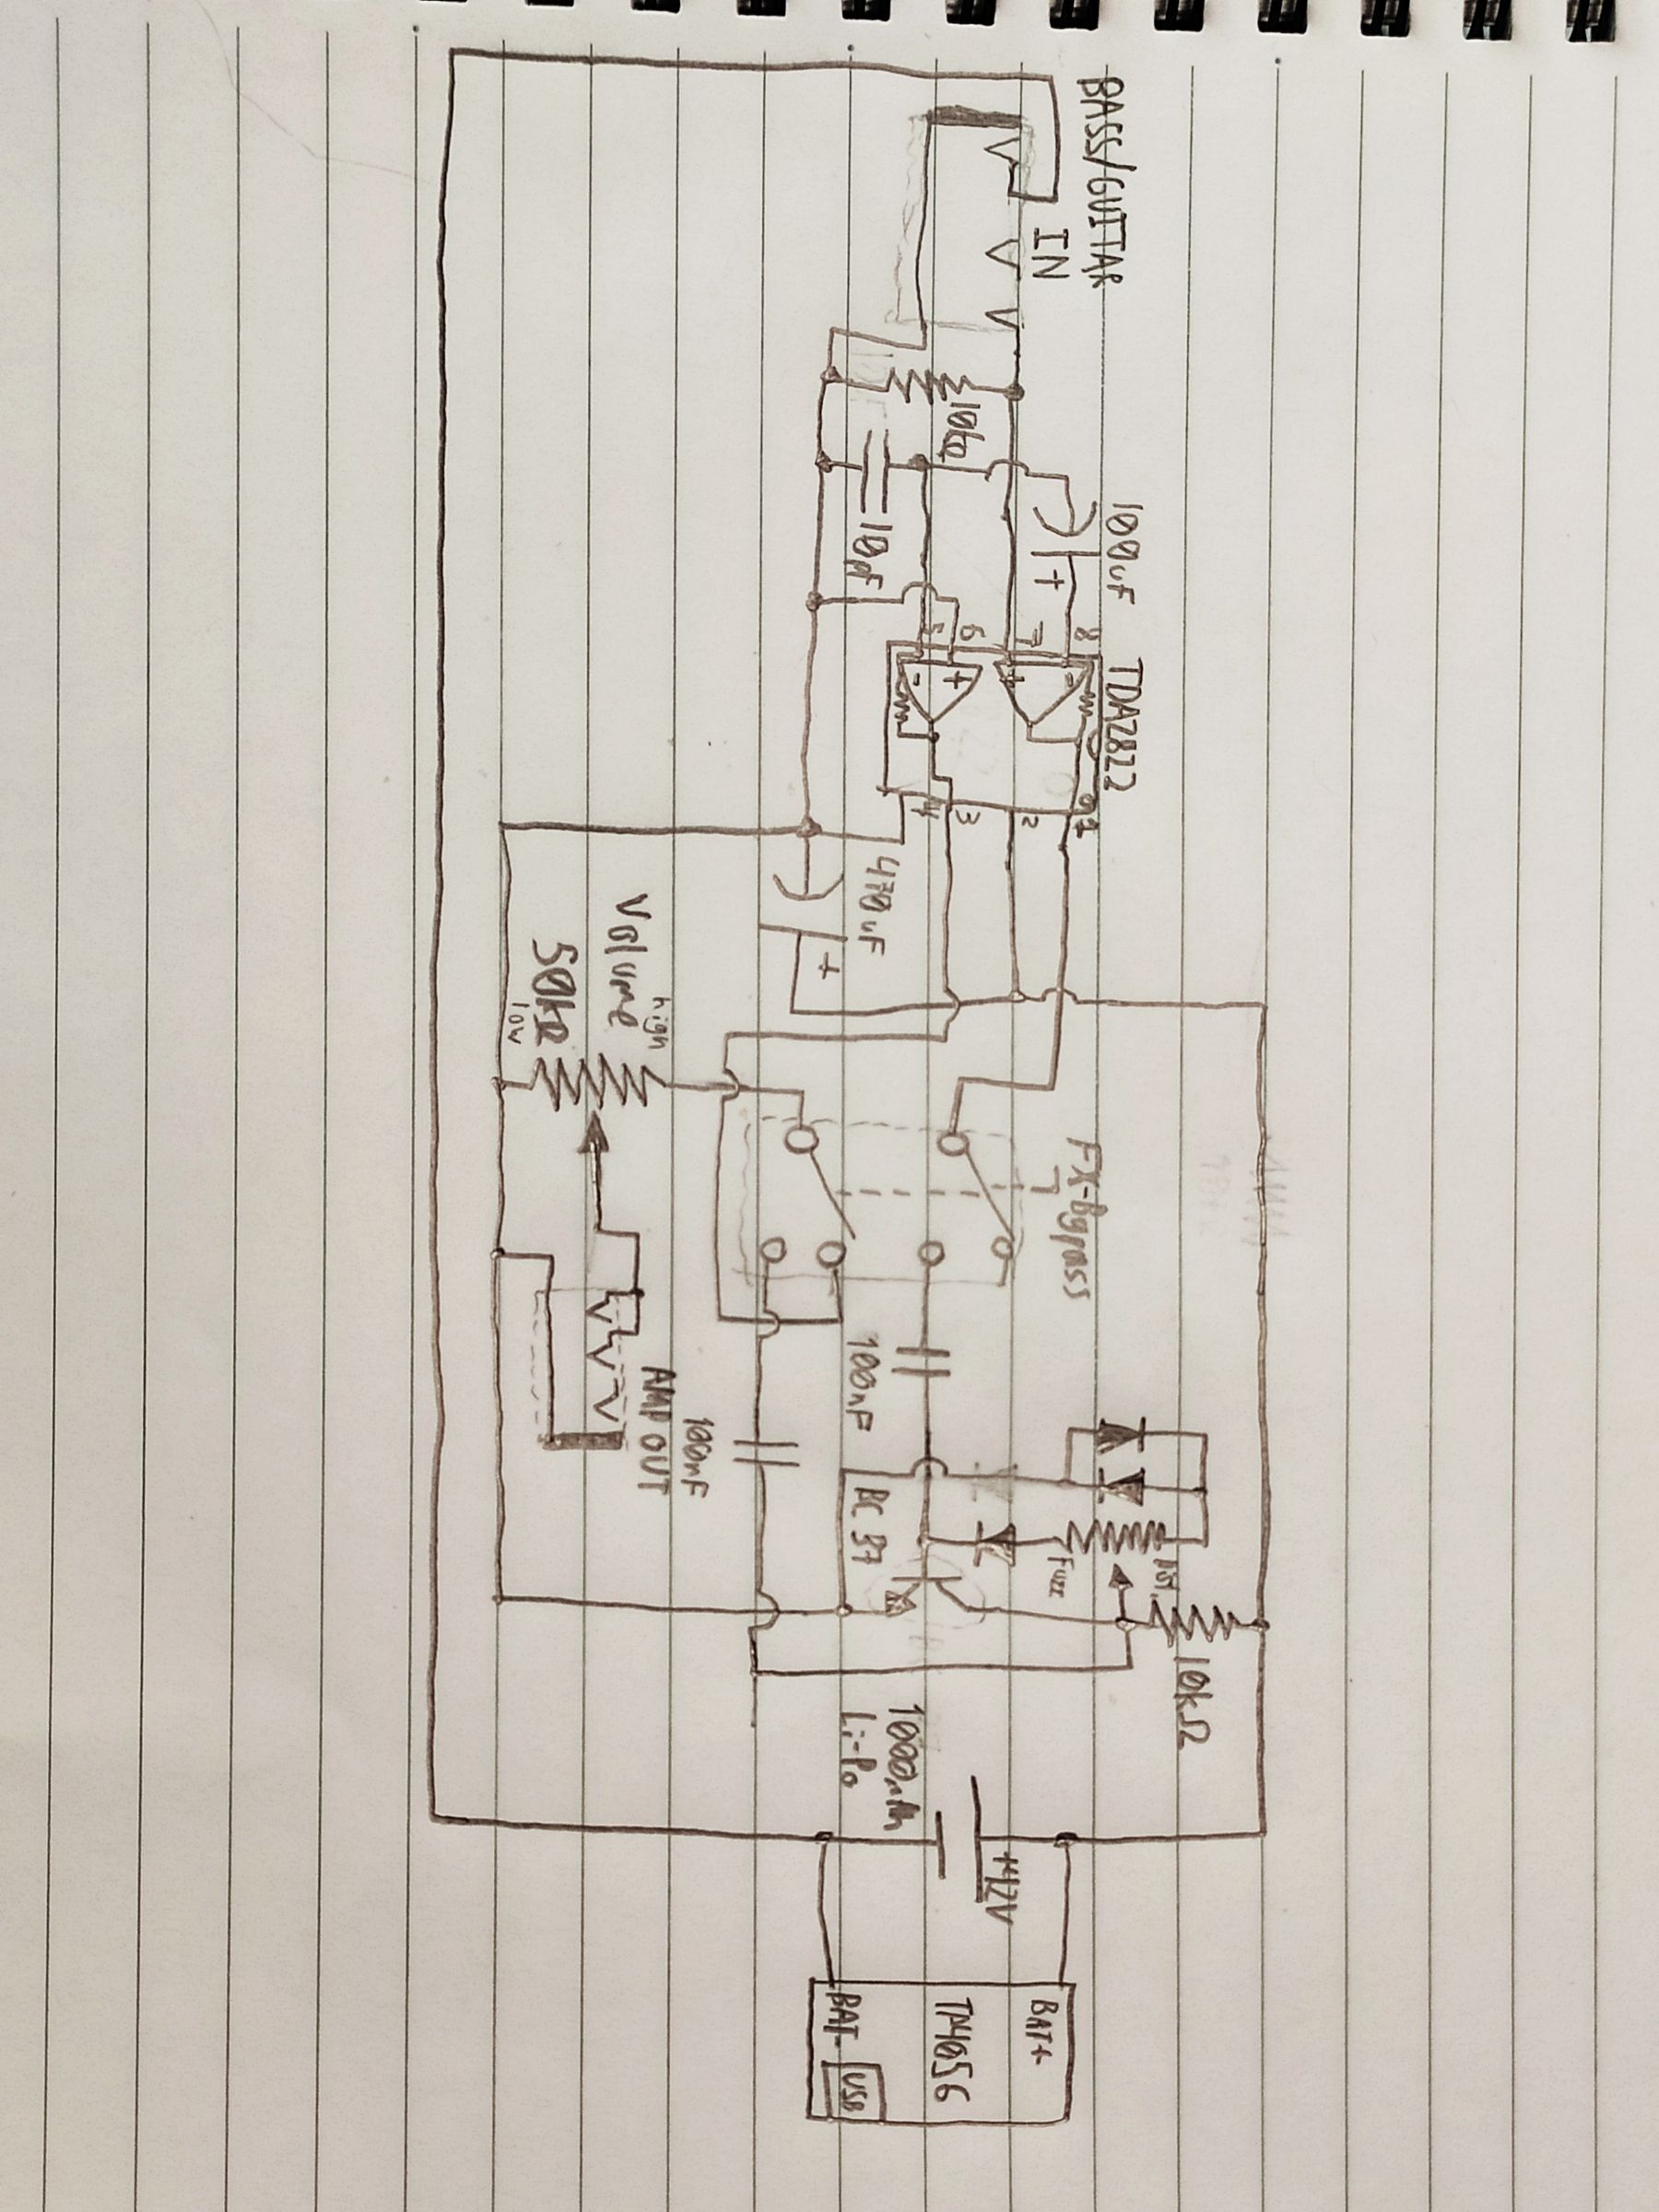 BASS/GUITAR
IN
10kΩ
100uF
+
10pF
TDA2822
8
7
6
5
+
-
+
-
1
2
3
4
470uF
+
Volume
50kΩ
high
low
FX-Bypass
AMP OUT
100nF
100nF
BC 37
Fuzz
10kΩ
1000mAh
Li-Po
+4,2V
BAT+
TP4056
BAT-
USB